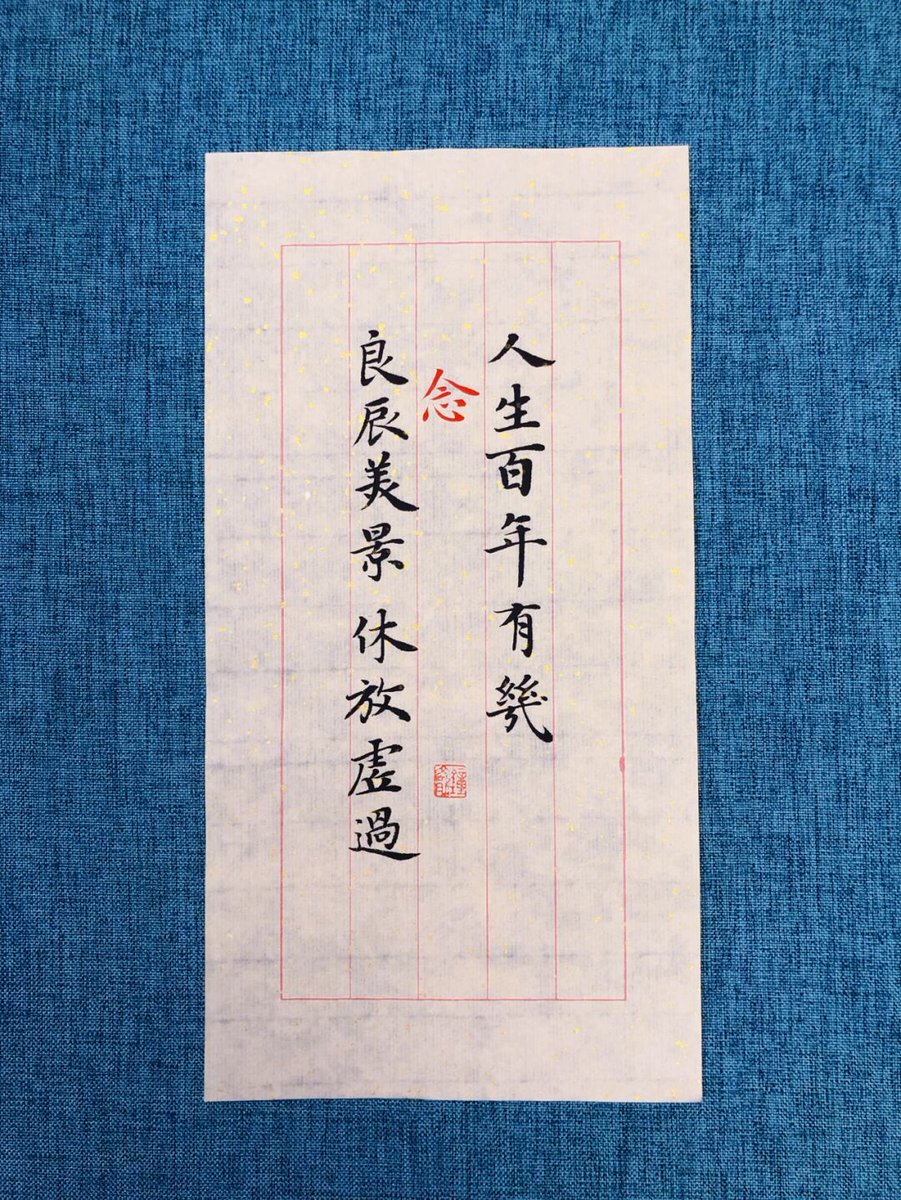 人生百年有幾
念
良辰美景 休放虛過